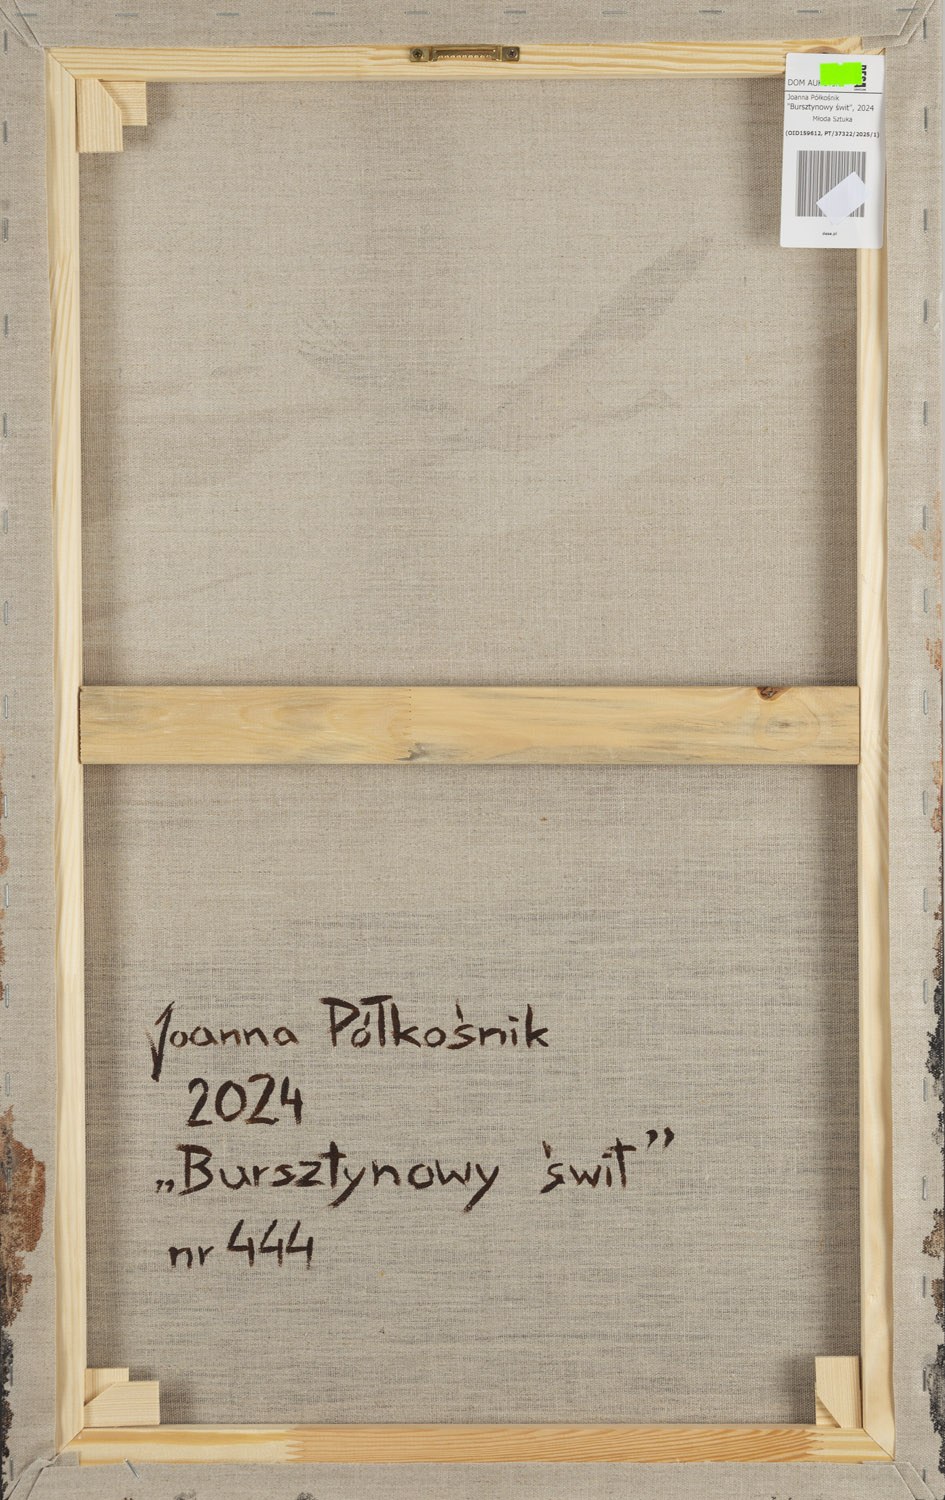 DOM AUK
Joanna Półkośnik
"Bursztynowy świt", 2024
Młoda Sztuka
(OID159612, PT/37322/2025/1)
desa.pl
Joanna Półkośnik
2024
„Bursztynowy świt”
nr 444